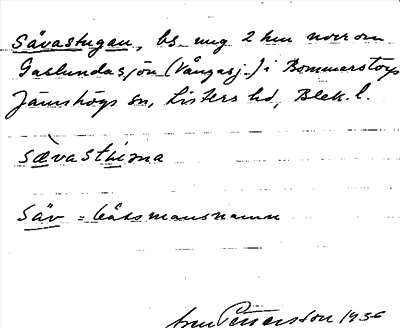 Sävastugan, bs. ung 2 km norr om
Gaslundasjön (Vångasj.) i Bommerstorp
Jämshögs sn, Listers hd, Blek. l.
sævasthima
Säv = båtsmansnamn
Petersson 1936